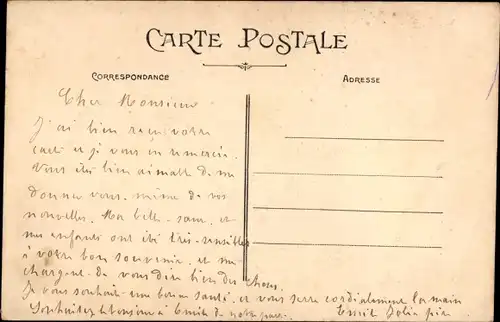 CARTE POSTALE
CORRESPONDANCE
ADRESSE
Cher Monsieur
J'ai bien reçu votre
carte et je vous en remercie.
Vous êtes bien aimable de me
donner vous-même de vos
nouvelles. Ma belle-sœur et
mes enfants ont été très-sensibles
à votre bon souvenir et me
chargent de vous dire bien des choses.
Je vous souhaite une bonne santé et vous serre cordialement la main
Emile